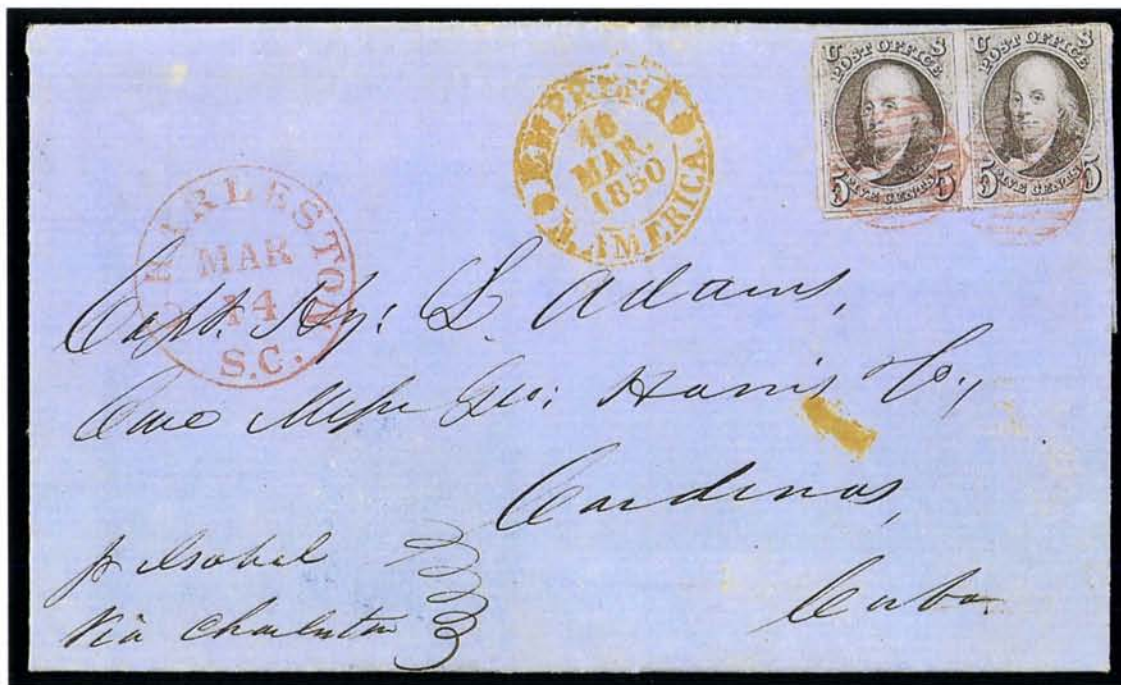 U S
POST OFFICE
5 FIVE CENTS 5
U S
POST OFFICE
5 FIVE CENTS 5
EMPRESA
18
MAR.
1850
N. AMERICA.
CHARLESTON
MAR
14
S.C.
Capt. Hy: L Adams,
Care Messr Geo: Harris Co.,
Cardenas,
Cuba
pr Isabel
Via Charleston